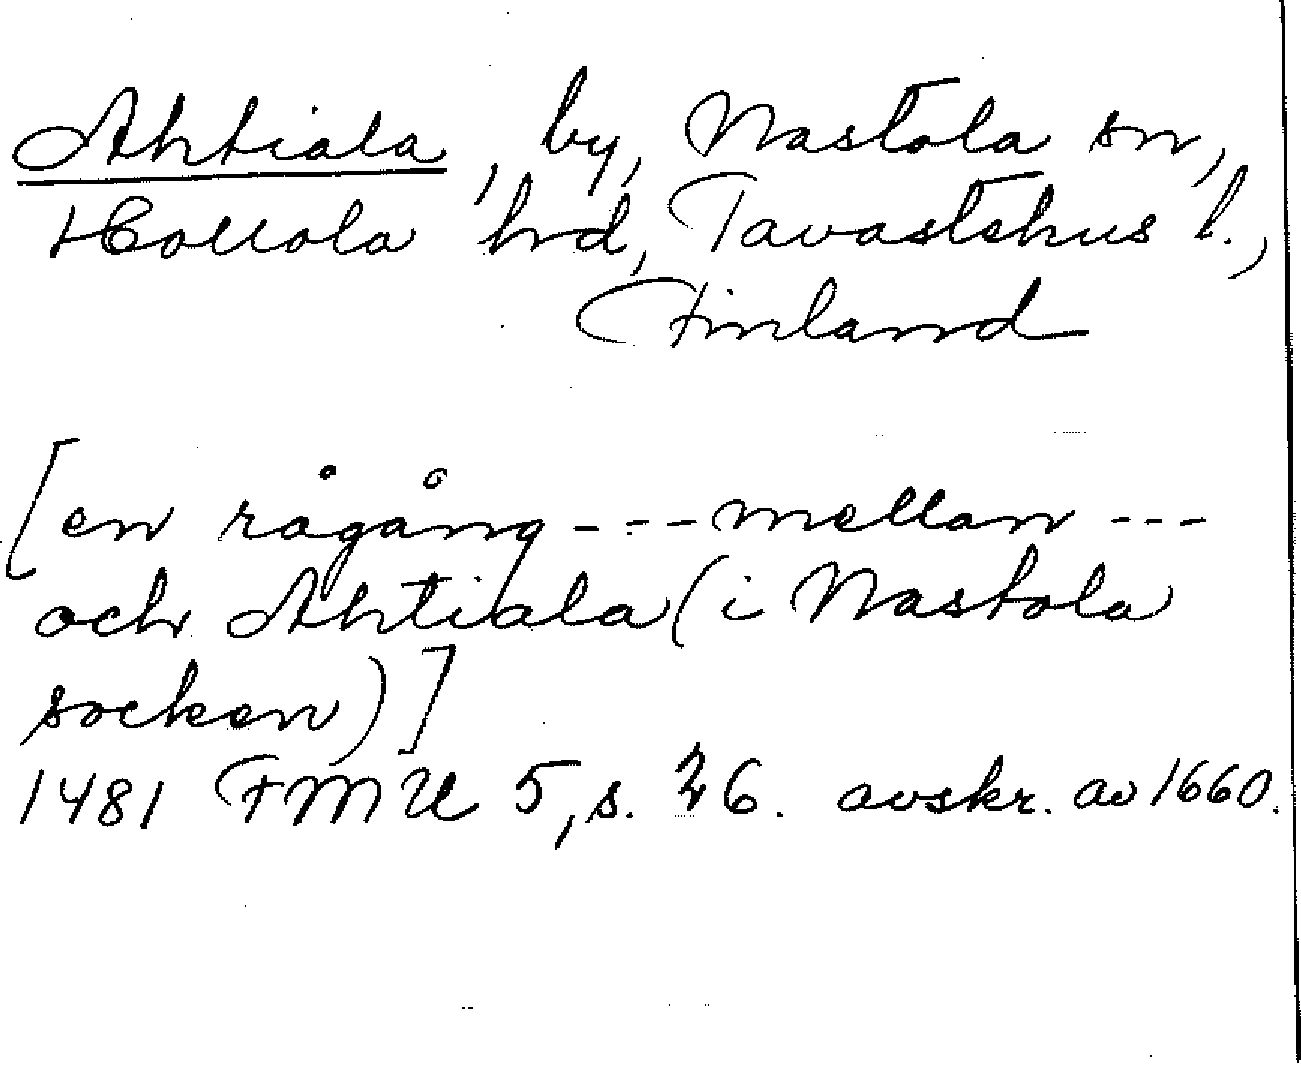 Ahtiala, by, Nastola sn,
Hollola hrd, Tavastehus l.,
Finland
[en rågång ---mellan ---
och Ahtiala (i Nastola
socken)]
1481 FMU 5, s. 26. avskr. av 1660.